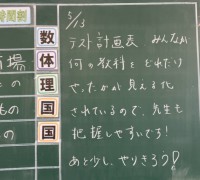 時間割
数
体
理
国
国
市場
もの
の
5/13
テスト計画表 みんなが
何の教科をどれだけ
やったかが見える化
されているので、先生も
把握しやすいです!
あと少し、やりきろう!